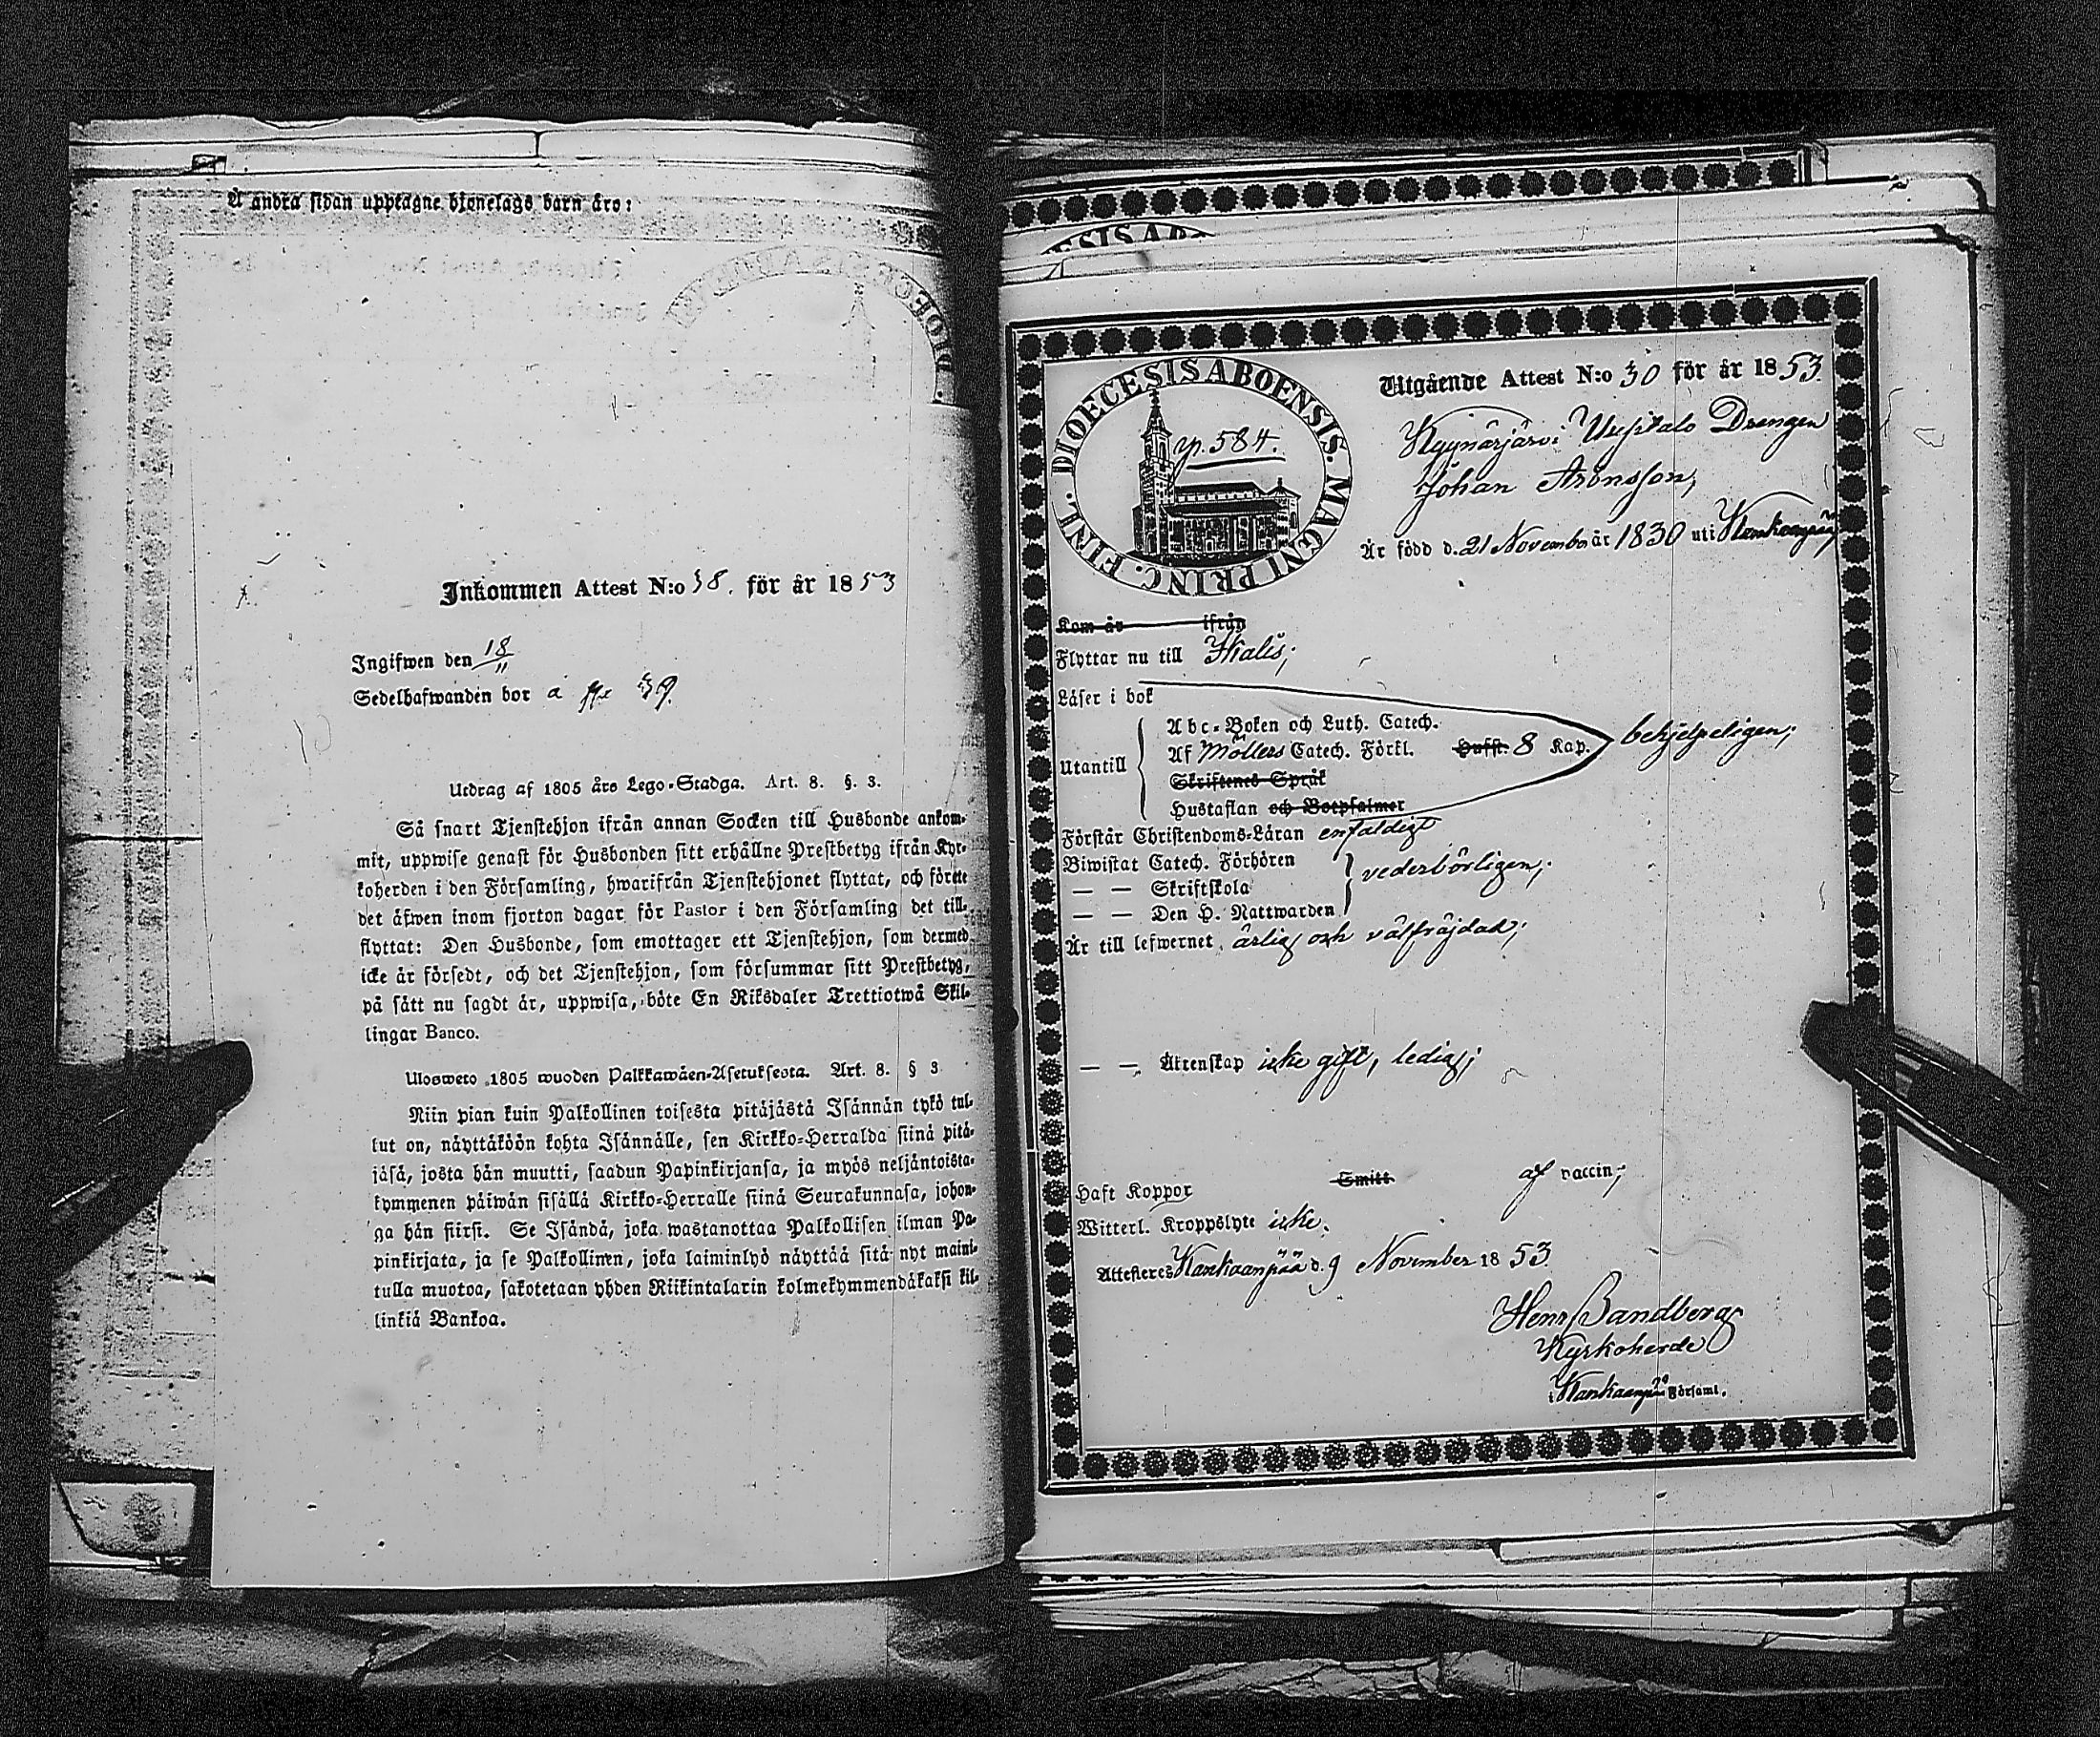 Å andra sidan upptagne hjonelags barn äro:
Inkommen Attest N:o 38. för år 1853
Ingifwen den 18/11
Sedelhafwanden bor å
Utdrag af 1805 års Lego-Stadga. Art. 8. §. 3.
Så snart Tjenstehjon ifrån annan Socken till Husbonde ankom-
mit, uppwise genast för Husbonden sitt erhållne Prestbetyg ifrån Kyr-
koherden i den Församling, hwarifrån Tjenstehjonet flyttat, och förete
det äfwen inom fjorton dagar för Pastor i den Församling det till-
flyttat: Den Husbonde, som emottager ett Tjenstehjon, som dermed
icke är försedt, och det Tjenstehjon, som försummar sitt Prestbetyg,
på sätt nu sagdt är, uppwisa, böte En Riksdaler Trettiotwå Skil-
lingar Banco.
Ulosweto 1805 wuoden Palkkawäen-Asetuksesta. Art. 8. § 3
Niin pian kuin Palkollinen toisesta pitäjästä Isännän tykö tul-
lut on, näyttäköön kohta Isännälle, sen Kirkko-Herralda siinä pitä-
jäsä, josta hän muutti, saadun Papinkirjansa, ja myös neljäntoista-
kymmenen päiwän sisällä Kirkko-Herralle siinä Seurakunnasa, johon-
ga hän siirsi. Se Isändä, joka wastanottaa Palkollisen ilman Pa-
pinkirjata, ja se Palkollinen, joka laiminlyö näyttää sitä nyt maini-
tulla muotoa, sakotetaan yhden Riikintalarin kolmekymmendäkaksi kil-
linkiä Bankoa.
DIOECESIS ABOENSIS. MAGNI PRINC. FINL.
p. 584.
Utgående Attest N:o 30 för år 1853.
Kyynärjärvi Uusitalo Drengen
Johan Aronsson,
Är född d. 21 November år 1830 uti Kankaanpää
Kom år ifrån
Flyttar nu till Ikalis;
Läser i bok
Utantill
Abc-Boken och Luth. Catech.
Af Möllers Catech. Förkl. Hufst. 8 Kap.
Skriftenes Språk
Hustaflan och Botpsalmer
behjelpeligen;
Förstår Christendoms-Läran enfaldigt
Biwistat Catech. Förhören
— — Skriftskola
— — Den H. Nattwarden
vederbörligen;
Är till lefwernet ärlig och välfräjdad;
— — Äktenskap icke gift, ledig;
Haft Koppor Smitt af vaccin;
Witterl. Kroppslyte icke.
Attesteres Kankaanpää d. 9 November 1853.
Henr Sandberg
Kyrkoherde
i Kankaanpää Församl.